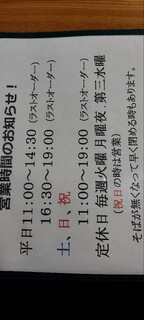 営業時間のお知らせ！
平日 11:00～14:30 (ラストオーダー)
16:30～19:00 (ラストオーダー)
土、日、祝
11:00～19:00 (ラストオーダー)
定休日 毎週火曜 月曜夜 第三水曜
(祝日の時は営業)
そばが無くなって早く閉める時もあります。